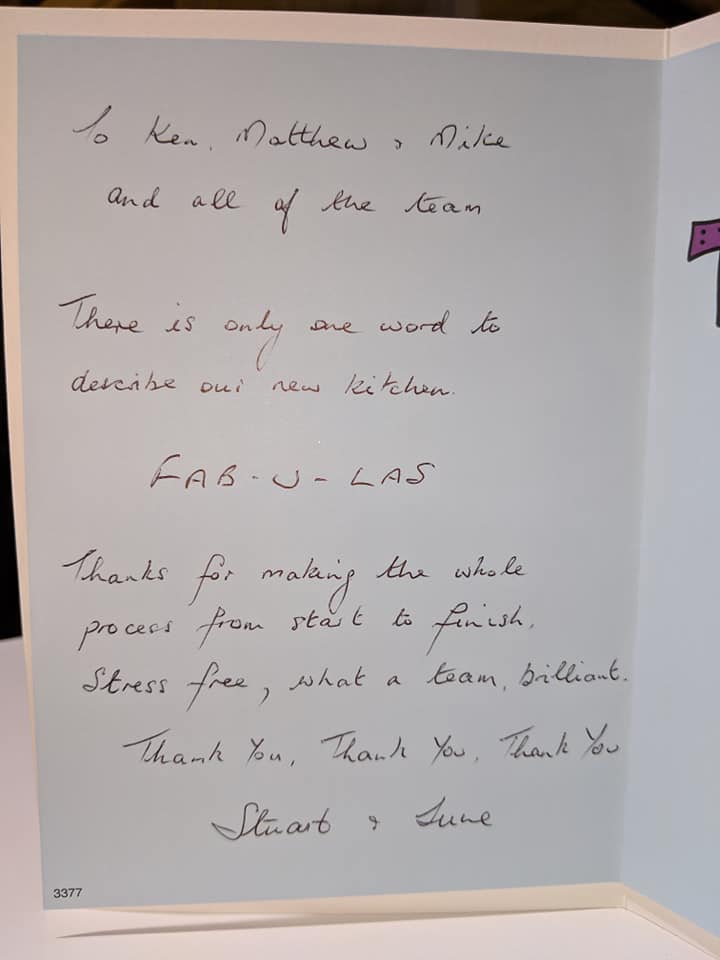 To Ken, Matthew & Mike
and all of the team
There is only one word to
describe our new kitchen.
FAB-U-LAS
Thanks for making the whole
process from start to finish,
Stress free, what a team, brilliant.
Thank You, Thank You, Thank You
Stuart & June
3377